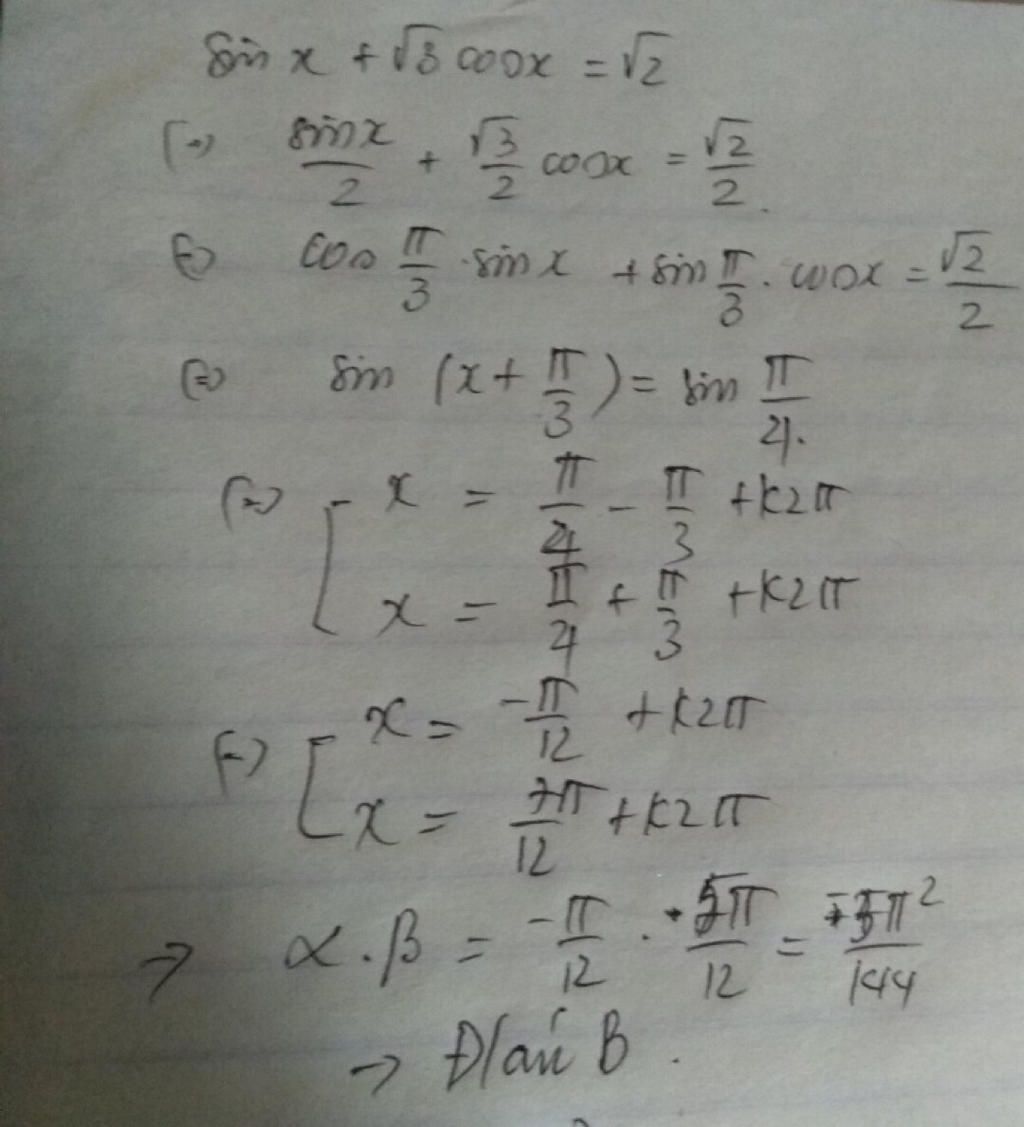 sin x + √3 cosx = √2
(=) sinx/2 + √3/2 cosx = √2/2.
(=) cos π/3 . sin x + sin π/3 . cosx = √2/2
(=) sin (x + π/3) = sin π/4.
(=) [ x = π/4 - π/3 + k2π
x = π/4 + π/3 + k2π
(=) [ x = -π/12 + k2π
x = 7π/12 + k2π
→ α.β = -π/12 . 5π/12 = π²/144
→ Đ/án B.